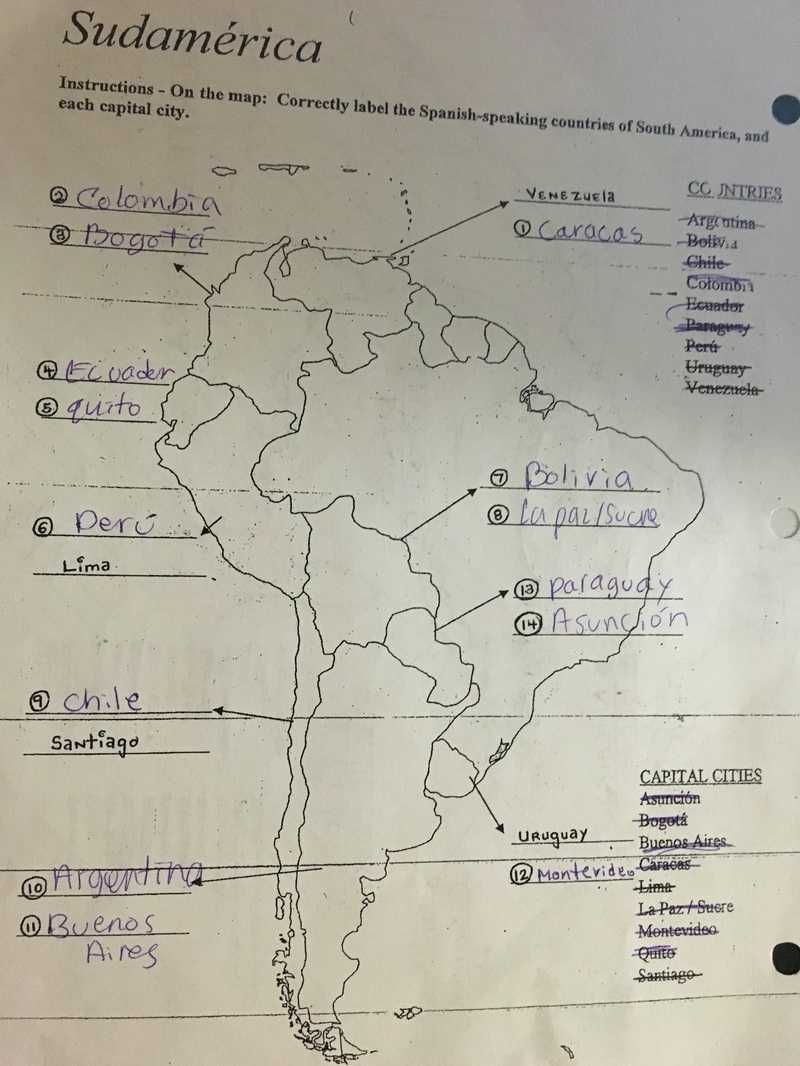 Sudamérica
Instructions - On the map: Correctly label the Spanish-speaking countries of South America, and
each capital city.
② Colombia
③ Bogotá
VENEZUEla
① Caracas
COUNTRIES
Argentina
Bolivia
Chile
Colombia
Ecuador
Paraguay
Perú
Uruguay
Venezuela
④ Ecuador
⑤ quito
⑥ Perú
Lima
⑦ Bolivia
⑧ La paz/Sucre
⑬ paraguay
⑭ Asunción
⑨ chile
Santiago
URuguay
⑫ Montevideo
⑩ Argentina
⑪ Buenos
Aires
CAPITAL CITIES
Asunción
Bogotá
Buenos Aires
Caracas
Lima
La Paz / Sucre
Montevideo
Quito
Santiago